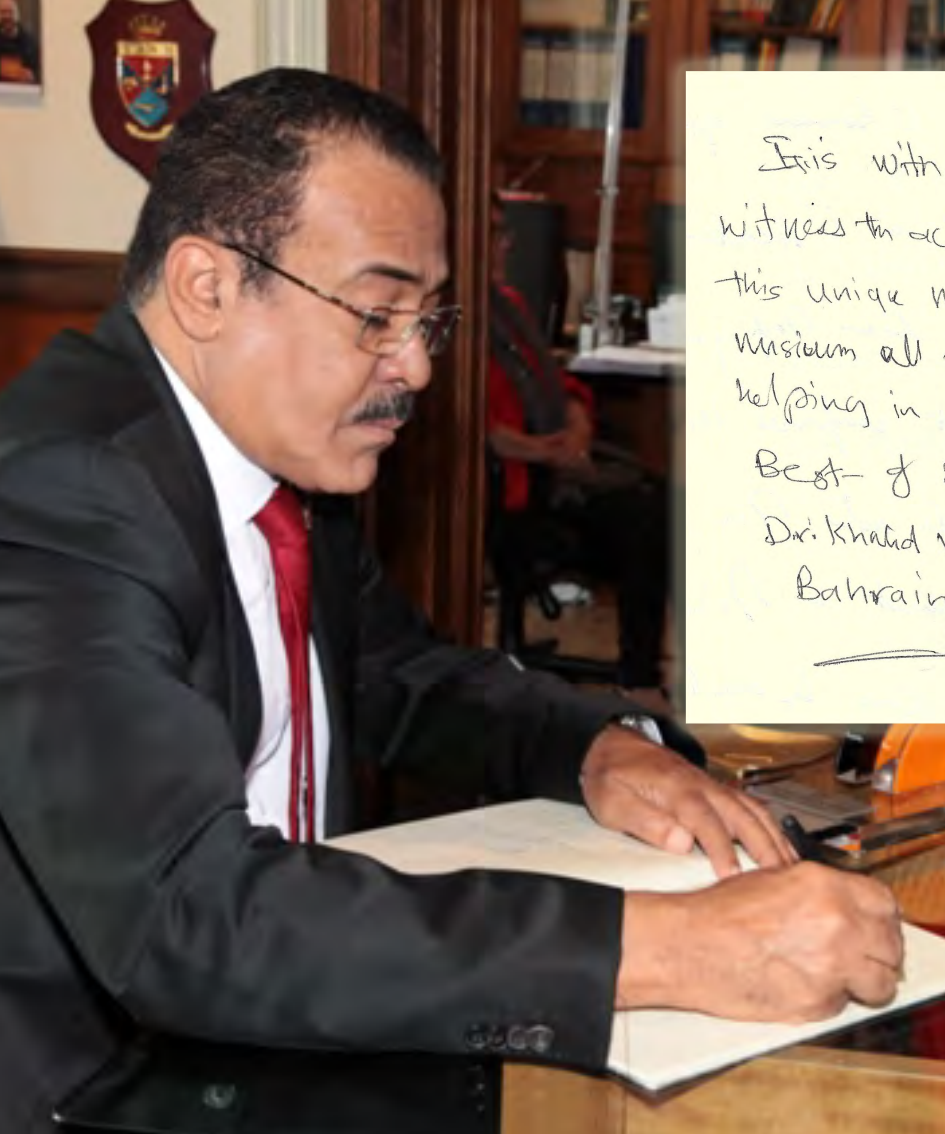 It is with
witness th ac
this unique n
musium all
helping in
Best of
Dr. Khalid
Bahrain